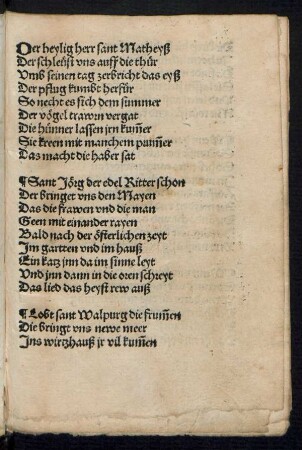 Der heylig herr sant Matheyß
Der schleüst vns auff die thür
Vmb seinen tag zerbricht das eyß
Der pflug kumbt herfür
So necht es sich dem summer
Der vögel trawrn vergat
Die hünner lassen jrn kum̃er
Sie kreen mit manchem pum̃er
Das macht die haber sat
¶ Sant Jörg der edel Ritter schon
Der bringet vns den Mayen
Das die frawen vnd die man
Geen mit einander rayen
Bald nach der österlichen zeyt
Jm gartten vnd im hauß
Ein katz jm da im sinne leyt
Vnd jm dann in die oren schreyt
Das lied das heyst rew auß
¶ Lobt sant Walpurg die frum̃en
Die bringt vns newe meer
Jns wirtzhauß jr vil kum̃en